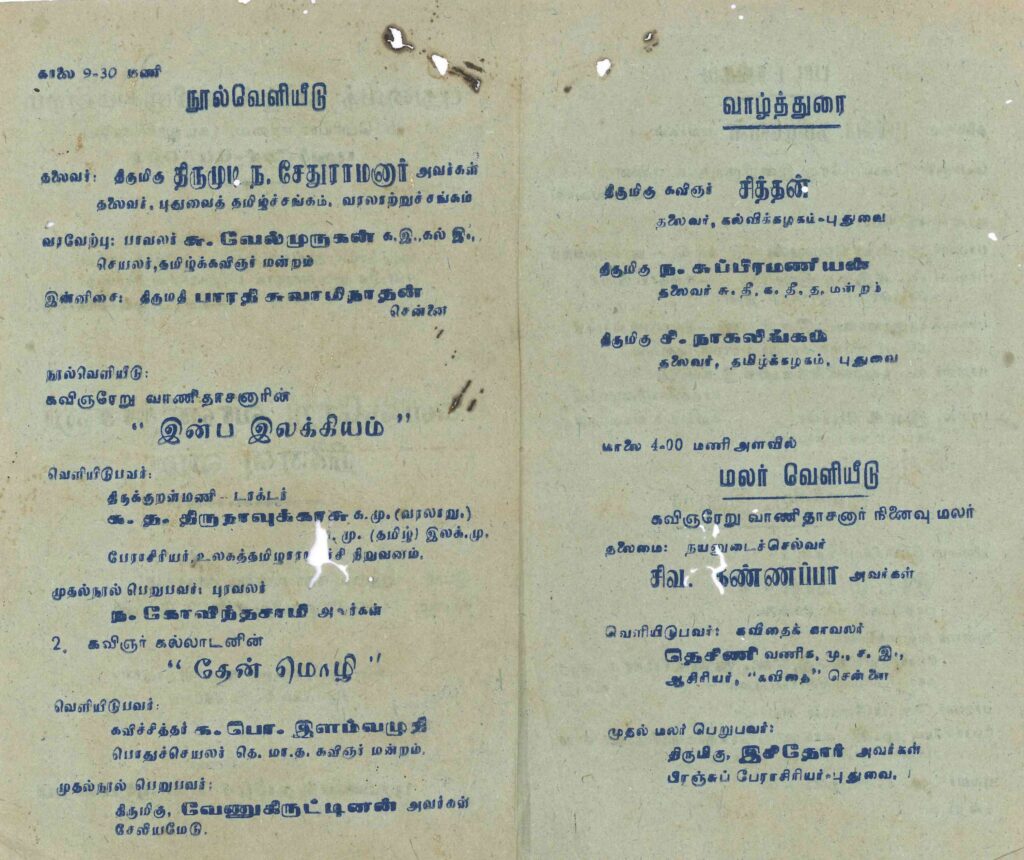 காலை 9-30 மணி
நூல்வெளியீடு
தலைவர்: திருமிகு திருமுடி ந. சேதுராமனார் அவர்கள்
தலைவர், புதுவைத் தமிழ்ச்சங்கம், வரலாற்றுச்சங்கம்
வரவேற்பு: பாவலர் சு. வேல்முருகன் க.இ.,கல் இ.,
செயலர், தமிழ்க்கவிஞர் மன்றம்
இன்னிசை: திருமதி பாரதி சுவாமிநாதன்
சென்னை
நூல்வெளியீடு:
கவிஞரேறு வாணிதாசனாரின்
“ இன்ப இலக்கியம் ”
வெளியிடுபவர்:
திருக்குறள்மணி - டாக்டர்
க. த. திருநாவுக்காசு க.மு. (வரலாறு.)
மு. (தமிழ்) இலக்.மு.
பேராசிரியர், உலகத்தமிழாரா சி நிறுவனம்.
முதல்நூல் பெறுபவர்: புரவலர்
ந. கோவிந்தசாமி அவர்கள்
2. கவிஞர் கல்லாடனின்
“ தேன் மொழி ”
வெளியிடுபவர்:
கவிச்சித்தர் க. பொ. இளம்வழுதி
பொதுச்செயலர் தெ. மா.த. கவிஞர் மன்றம்.
முதல்நூல் பெறுபவர்:
திருமிகு, வேணுகிருட்டினன் அவர்கள்
சேலியமேடு.
வாழ்த்துரை
திருமிகு கவிஞர் சித்தன்
தலைவர், கல்விக்கழகம்-புதுவை
திருமிகு ந. சுப்பிரமணியன்
தலைவர் சு. தீ. க. தீ. த. மன்றம்
திருமிகு சி. நாகலிங்கம்
தலைவர், தமிழ்க்கழகம், புதுவை
காலை 4-00 மணி அளவில்
மலர் வெளியீடு
கவிஞரேறு வாணிதாசனார் நினைவு மலர்
தலைமை: நயனுடைச்செல்வர்
சிவ. கண்ணப்பா அவர்கள்
வெளியிடுபவர்: கவிதைக் காவலர்
தெசிணி வணிக, மு., ச. இ.,
ஆசிரியர், “கவிதை” சென்னை
முதல் மலர் பெறுபவர்:
திருமிகு, இசிதோர் அவர்கள்
பிரஞ்சுப் பேராசிரியர்-புதுவை.